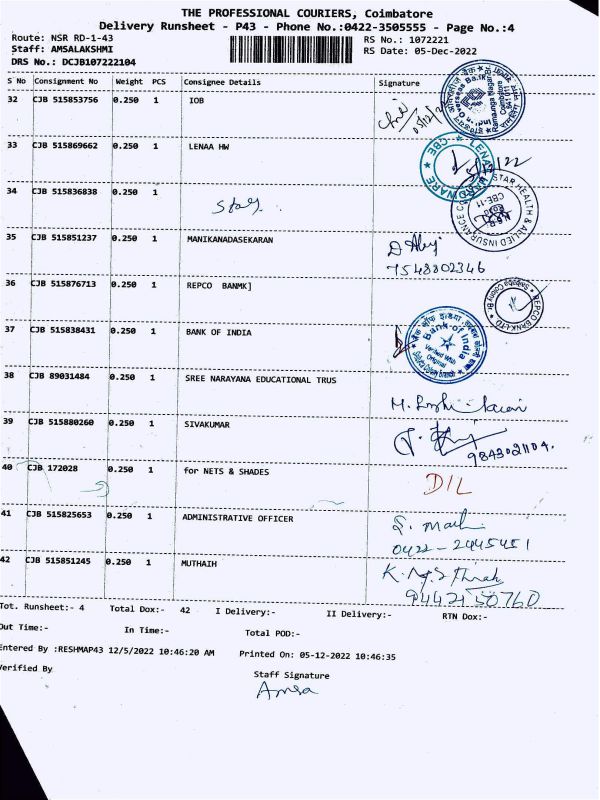 THE PROFESSIONAL COURIERS, Coimbatore
Delivery Runsheet - P43 - Phone No.:0422-3505555 - Page No.:4
Route: NSR RD-1-43
Staff: AMSALAKSHMI
DRS No.: DCJB107222104
RS No.: 1072221
RS Date: 05-Dec-2022
S No Consignment No Weight PCS Consignee Details Signature
32 CJB 515853756 0.250 1 IOB
33 CJB 515869662 0.250 1 LENAA HW
34 CJB 515836838 0.250 1 Star
STAR HEALTH & ALLIED INSURANCE
CBE-11
35 CJB 515851237 0.250 1 MANIKANADASEKARAN
7548802346
36 CJB 515876713 0.250 1 REPCO BANMK]
37 CJB 515838431 0.250 1 BANK OF INDIA
Bank of India
Verified With Original
38 CJB 89031484 0.250 1 SREE NARAYANA EDUCATIONAL TRUS
39 CJB 515880260 0.250 1 SIVAKUMAR
9843021104.
40 CJB 172028 0.250 1 for NETS & SHADES DIL
41 CJB 515825653 0.250 1 ADMINISTRATIVE OFFICER
0422-2445451
42 CJB 515851245 0.250 1 MUTHAIH
9442150760
Tot. Runsheet:- 4 Total Dox:- 42 I Delivery:- II Delivery:- RTN Dox:-
Out Time:- In Time:- Total POD:-
Entered By :RESHMAP43 12/5/2022 10:46:20 AM Printed On: 05-12-2022 10:46:35
Verified By Staff Signature
Amsa